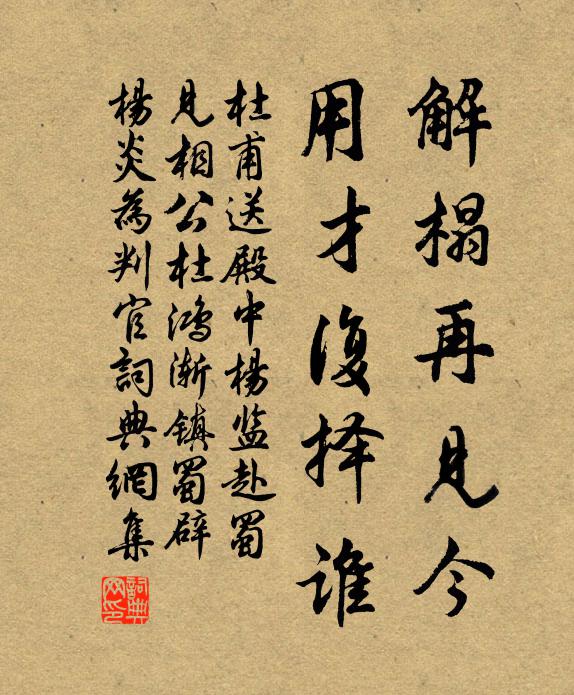 解榻再見今
用才復择誰
杜甫送殿中楊监赴蜀
見相公杜鴻漸鎮蜀辟
楊炎為判官詞典網集
詞典网印